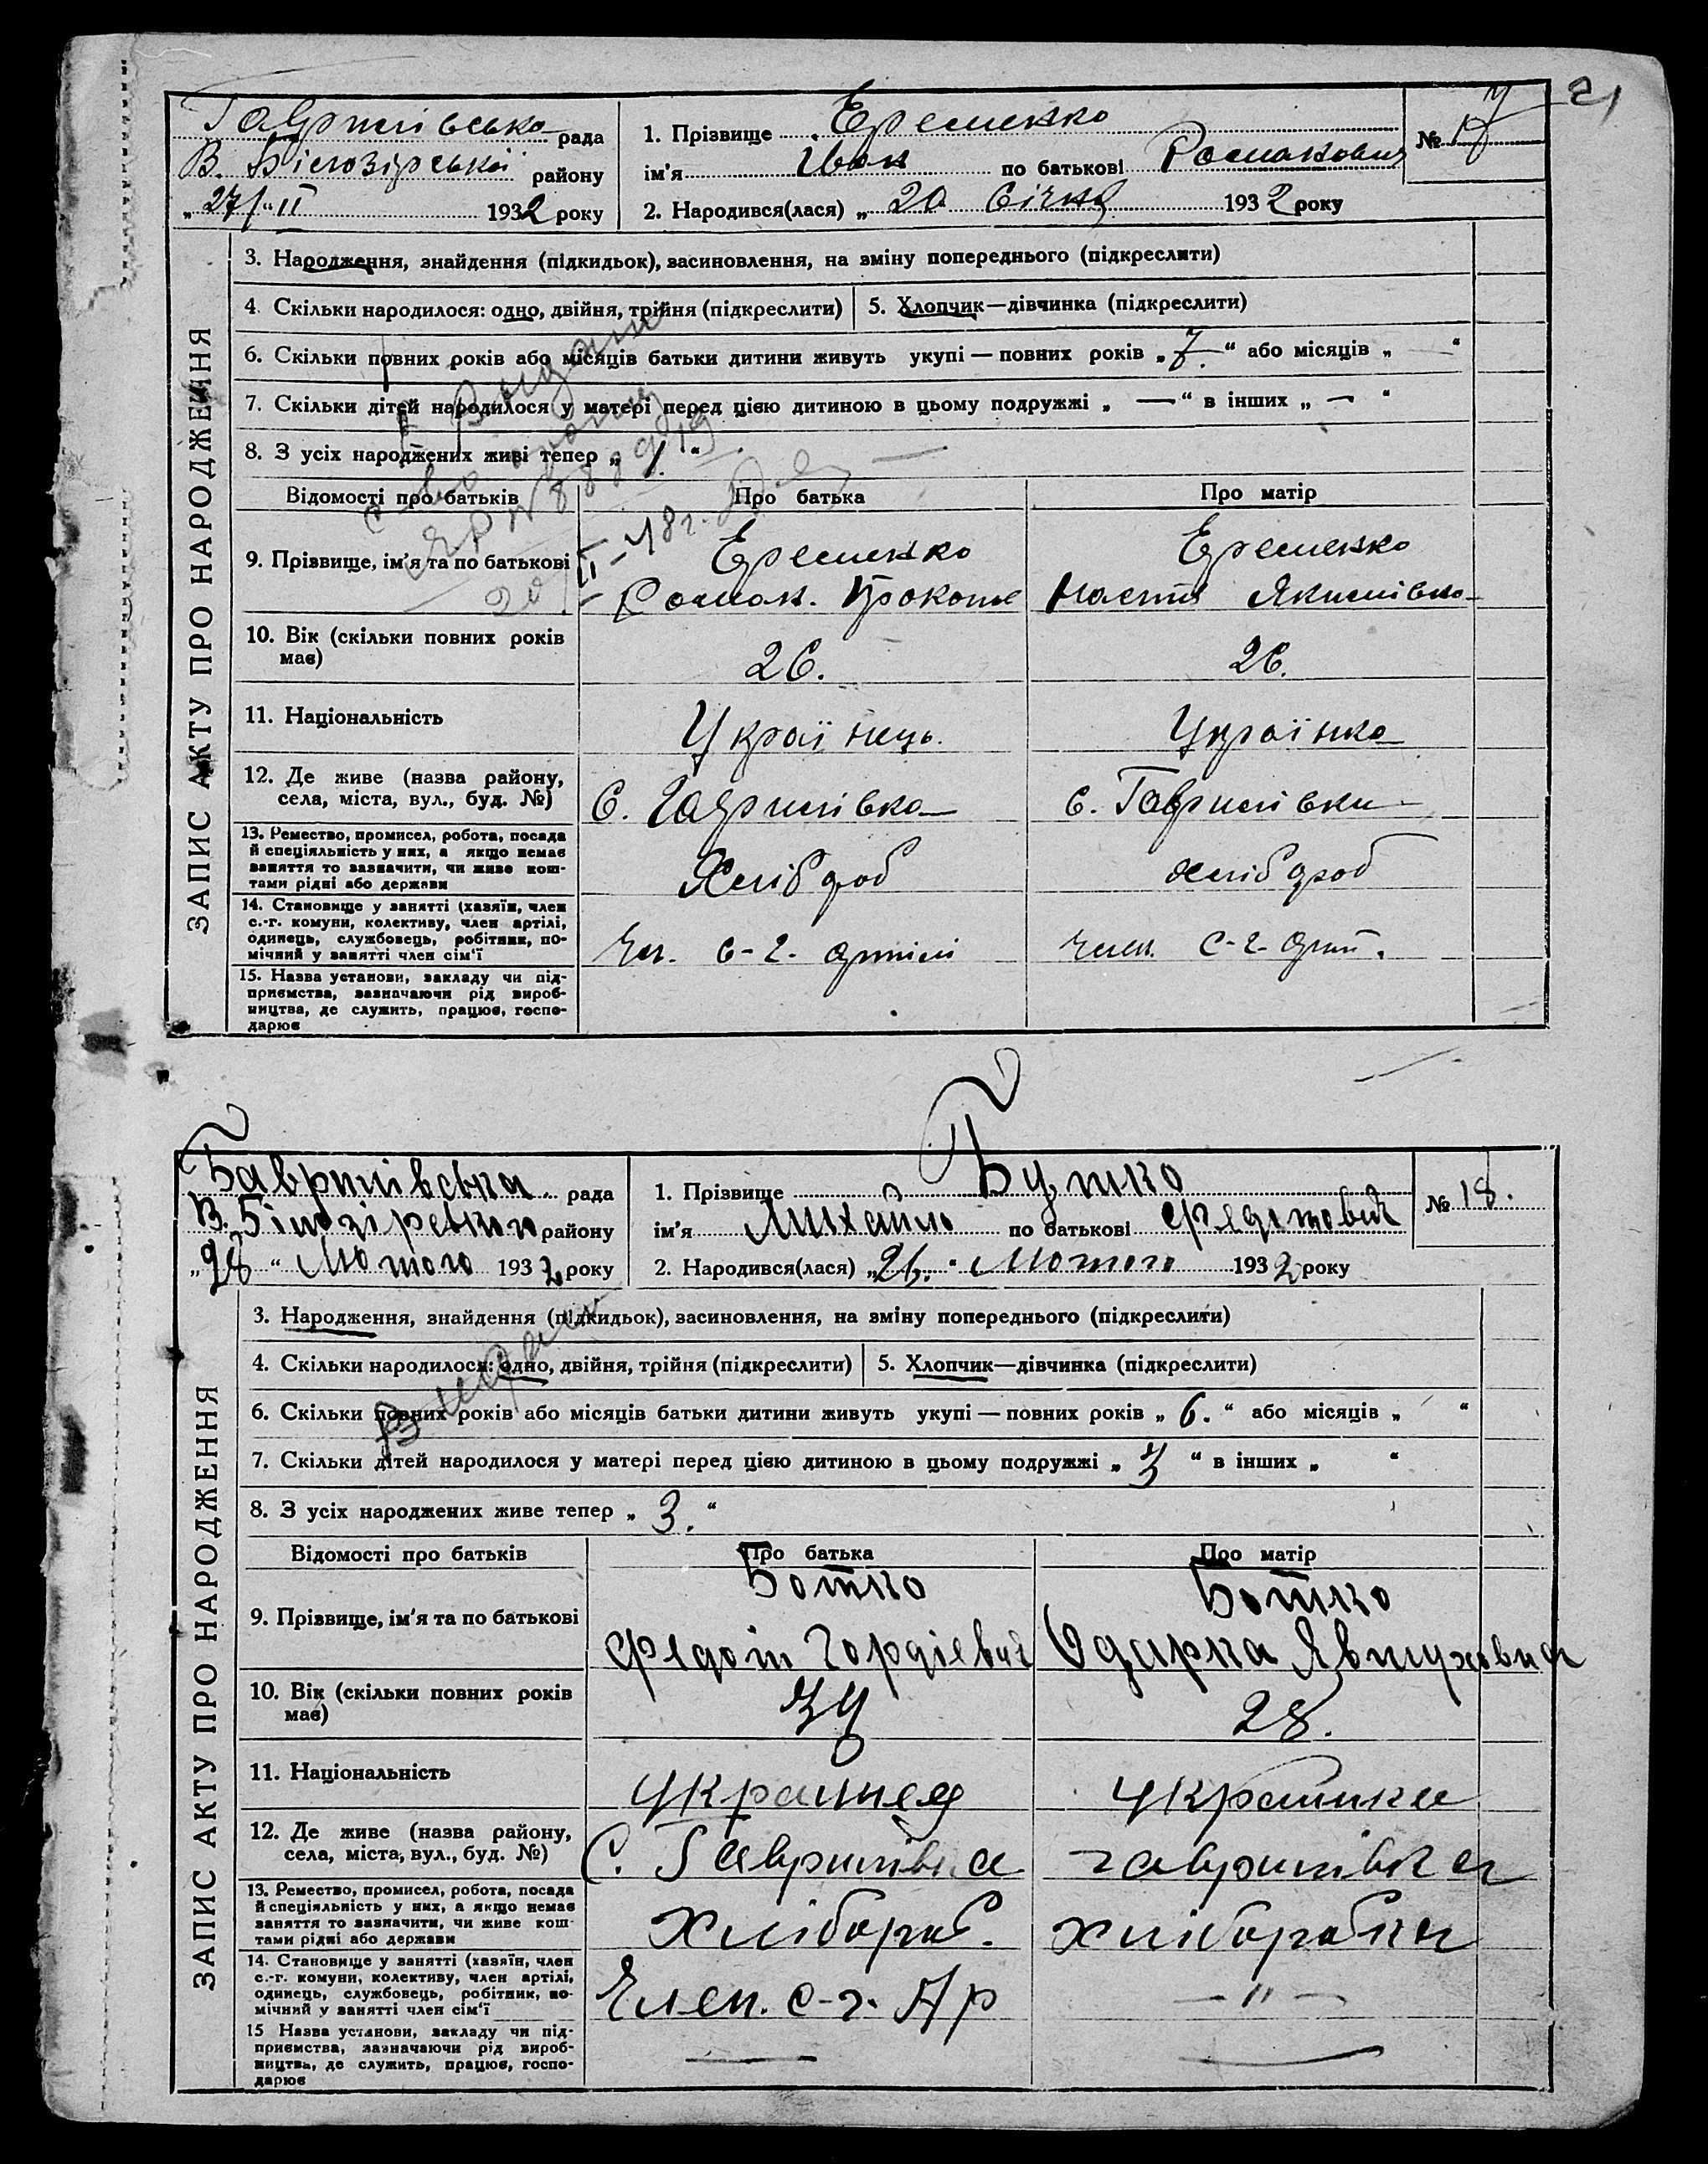 21
Гаврилівська рада
В. Білозірської району
„ 27/ “ II 1932 року
1. Прізвище Еременко
ім'я Іван по батькові Романович
2. Народився(лася) „ 20 Січня 1932 року
№ 17
ЗАПИС АКТУ ПРО НАРОДЖЕННЯ
3. Народження, знайдення (підкидьок), засиновлення, на зміну попереднього (підкреслити)
4. Скільки народилося: одно, двійня, трійня (підкреслити) 5. Хлопчик—дівчинка (підкреслити)
6. Скільки повних років або місяців батьки дитини живуть укупі — повних років „ 7. “ або місяців „ — “
7. Скільки дітей народилося у матері перед цією дитиною в цьому подружжі „ — “ в інших „ — “
8. З усіх народжених живі тепер „ 1. “
Видани
Відомості про батьків Про батька Про матір
9. Прізвище, ім'я та по батькові Еременко Еременко
Роман. Прокопов Настя Якимівна
10. Вік (скільки повних років має) 26. 26.
11. Національність Українець. Українка
12. Де живе (назва району, села, міста, вул., буд. №) С. Гаврилівка с. Гаврилівки
13. Ремество, промисел, робота, посада
й спеціяльність у них, а якщо немає
заняття то зазначити, чи живе кош-
тами рідні або держави
Хлібороб хлібороб
14. Становище у занятті (хазяїн, член
с.-г. комуни, колективу, член артілі,
одинець, службовець, робітник, по-
мічний у занятті член сім'ї
Чл. с-г. артілі Член. с-г. арт.
15. Назва установи, закладу чи під-
приємства, зазначаючи рід вироб-
ництва, де служить, працює, госпо-
дарює
Гаврилівська рада
В. Білозірського району
„ 28 “ Лютого 1932 року
1. Прізвище Бутко
ім'я Михайло по батькові Федотович
2. Народився(лася) „ 26. “ Лютого 1932 року
№ 18.
ЗАПИС АКТУ ПРО НАРОДЖЕННЯ
3. Народження, знайдення (підкидьок), засиновлення, на зміну попереднього (підкреслити)
4. Скільки народилося: одно, двійня, трійня (підкреслити) 5. Хлопчик—дівчинка (підкреслити)
6. Скільки повних років або місяців батьки дитини живуть укупі — повних років „ 6. “ або місяців „ “
7. Скільки дітей народилося у матері перед цією дитиною в цьому подружжі „ 3 “ в інших „ “
8. З усіх народжених живе тепер „ 3. “
Видани
Відомості про батьків Про батька Про матір
9. Прізвище, ім'я та по батькові Ботко Ботко
Федот Гордіевич Одарка Явтуховна
10. Вік (скільки повних років має) 34 28.
11. Національність Украинец Украинка
12. Де живе (назва району, села, міста, вул., буд. №) С. Гаврилівка гаврилівка
13. Ремество, промисел, робота, посада
й спеціяльність у них, а якщо немає
заняття то зазначити, чи живе кош-
тами рідні або держави
хлібороб. хлібборобка
14. Становище у занятті (хазяїн, член
с.-г. комуни, колективу, член артілі,
одинець, службовець, робітник, по-
мічний у занятті член сім'ї
Член. с-г. Ар — " —
15 Назва установи, закладу чи під-
приємства, зазначаючи рід вироб-
ництва, де служить, працює, госпо-
дарює
— —